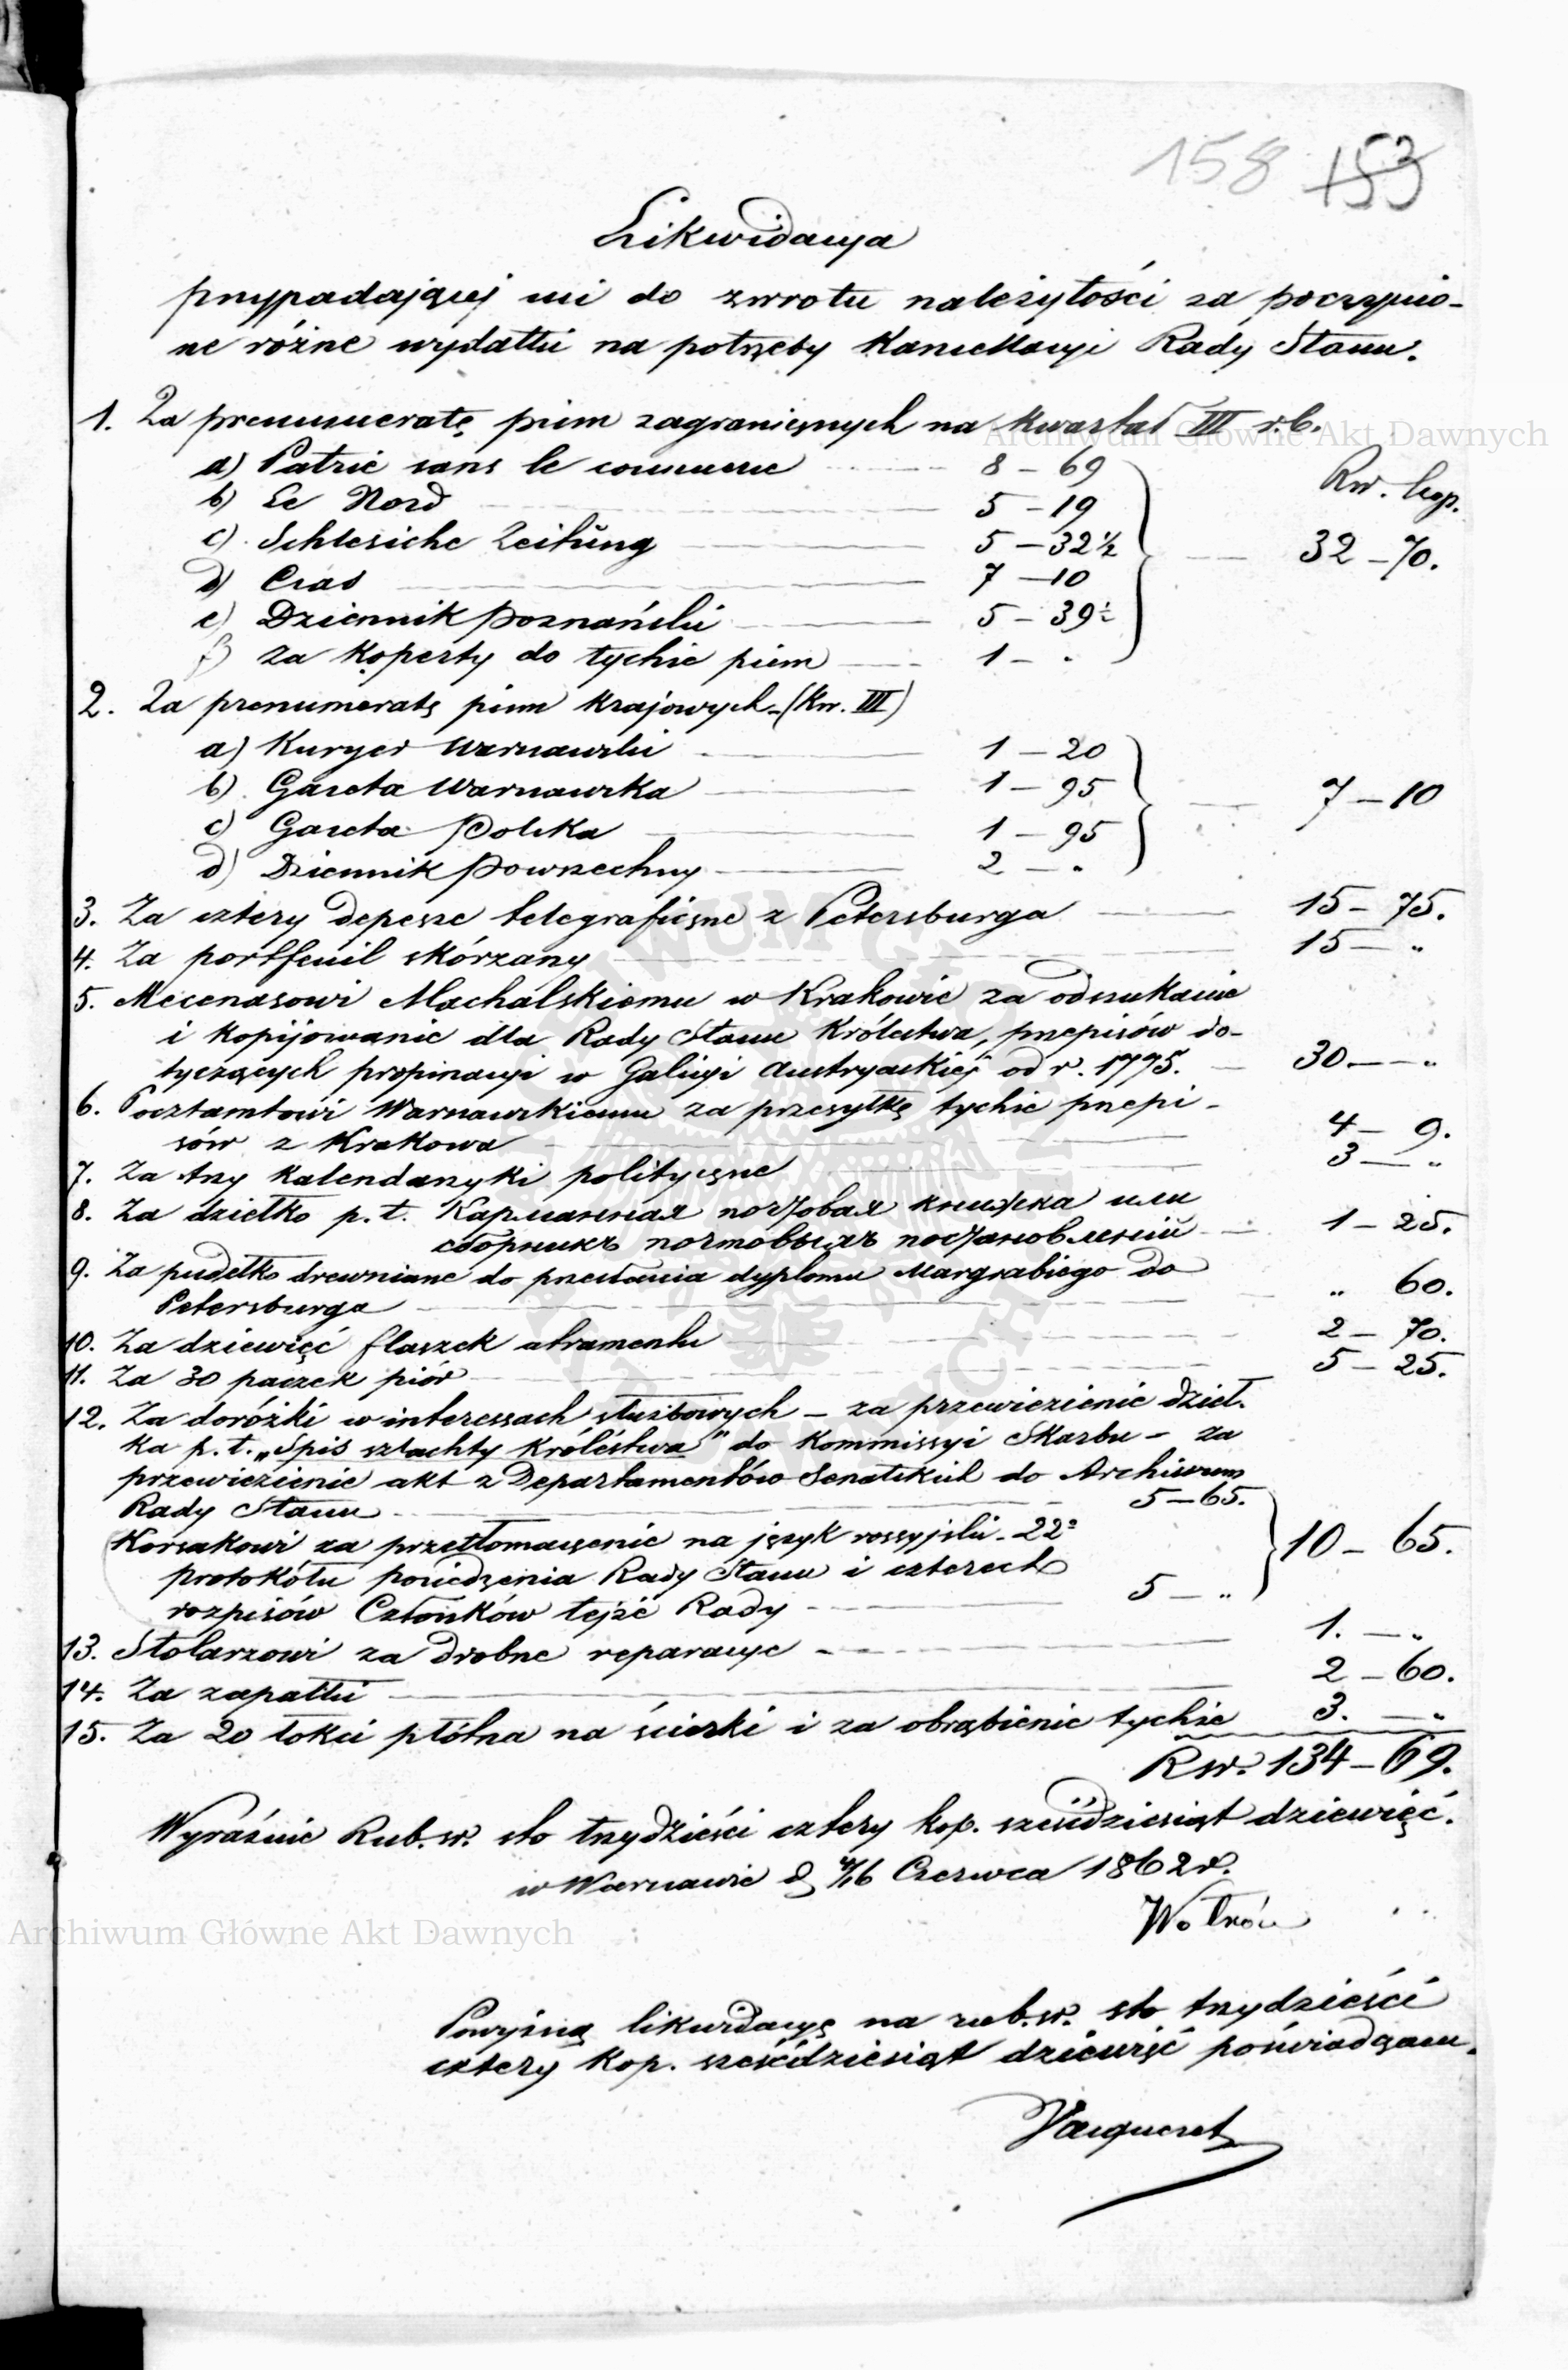 158 153
Likwidacya
przypadającej mi do zwrotu należytości za poczynio-
ne różne wydatki na potrzeby Kancellaryi Rady Stanu.
1. Za prenumeratę pism zagranicznych na Kwartał III r.b.
Rsr. kop.
a) Patrie sans le 8 – 69
b) Le Nord 5 – 19
c) Schlesiche Zeitŭng 5 – 32½ 32 – 70.
d) Czas 7 – 10
e) Dziennik Poznański 5 – 39½
f) za Koperty do tychże pism 1 – „
2. Za prenumeratę pism Krajowych – (Kw. III)
a) Kuryer Warszawski 1 – 20
b) Gazeta Warszawska 1 – 95 7 – 10
c) Gazeta Polska 1 – 95
d) Dziennik Powszechny 2 – „
3. Za cztery depesze telegraficzne z Petersburga 15 – 75.
4. Za portfeuil skórzany 15 – „
5. Mecenasowi Machalskiemu w Krakowie za odszukanie
i kopijowanie dla Rady Stanu Królestwa, przepisów do-
tyczących propinacyi w Galicyi Austryackiej od r. 1775. 30 – „
6. Pocztamtowi Warszawskiemu za przesyłkę tychże przepi-
sów z Krakowa 4 – 9.
7. Za trzy Kalendarzyki polityczne 3 – „
8. Za dziełko p. t. Карманная почтовая книжка или
сборникъ почтовыхъ постановленій 1 – 25.
9. Za pudełko drewniane do przesłania dyplomu Margrabiego do
Petersburga „ 60.
10. Za dziewięć flaszek atramentu 2 – 70.
11. Za 30 paczek piór 5 – 25.
12. Za doróżki w interessach służbowych – za przewiezienie dzieł-
ka p. t. „Spis szlachty Królestwa" do Kommissyi Skarbu – za
przewiezienie akt z Departamentów Senatskich do Archiwum
Rady Stanu 5 – 65.
Korsakowi za przetłomaczenie na język rossyjski 22º
protokółu posiedzenia Rady Stanu i czterech 10 – 65.
rozpisów Członków tejże Rady 5 – „
13. Stolarzowi za drobne reparacye 1. – „
14. Za zapałki 2 – 60.
15. Za 20 łokci płótna na ścierki i za obrąbienie tychże 3. – „
Rsr. 134 – 69.
Wyraźnie Rub. sr. sto trzydzieści cztery kop. sześćdziesiąt dziewięć.
w Warszawie d. 4/16 Czerwca 1862 r.
Powyższą likwidacyę na rub. sr. sto trzydzieści
cztery kop. sześćdziesiąt dziewięć poświadczam.
Archiwum Główne Akt Dawnych
Archiwum Główne Akt Dawnych